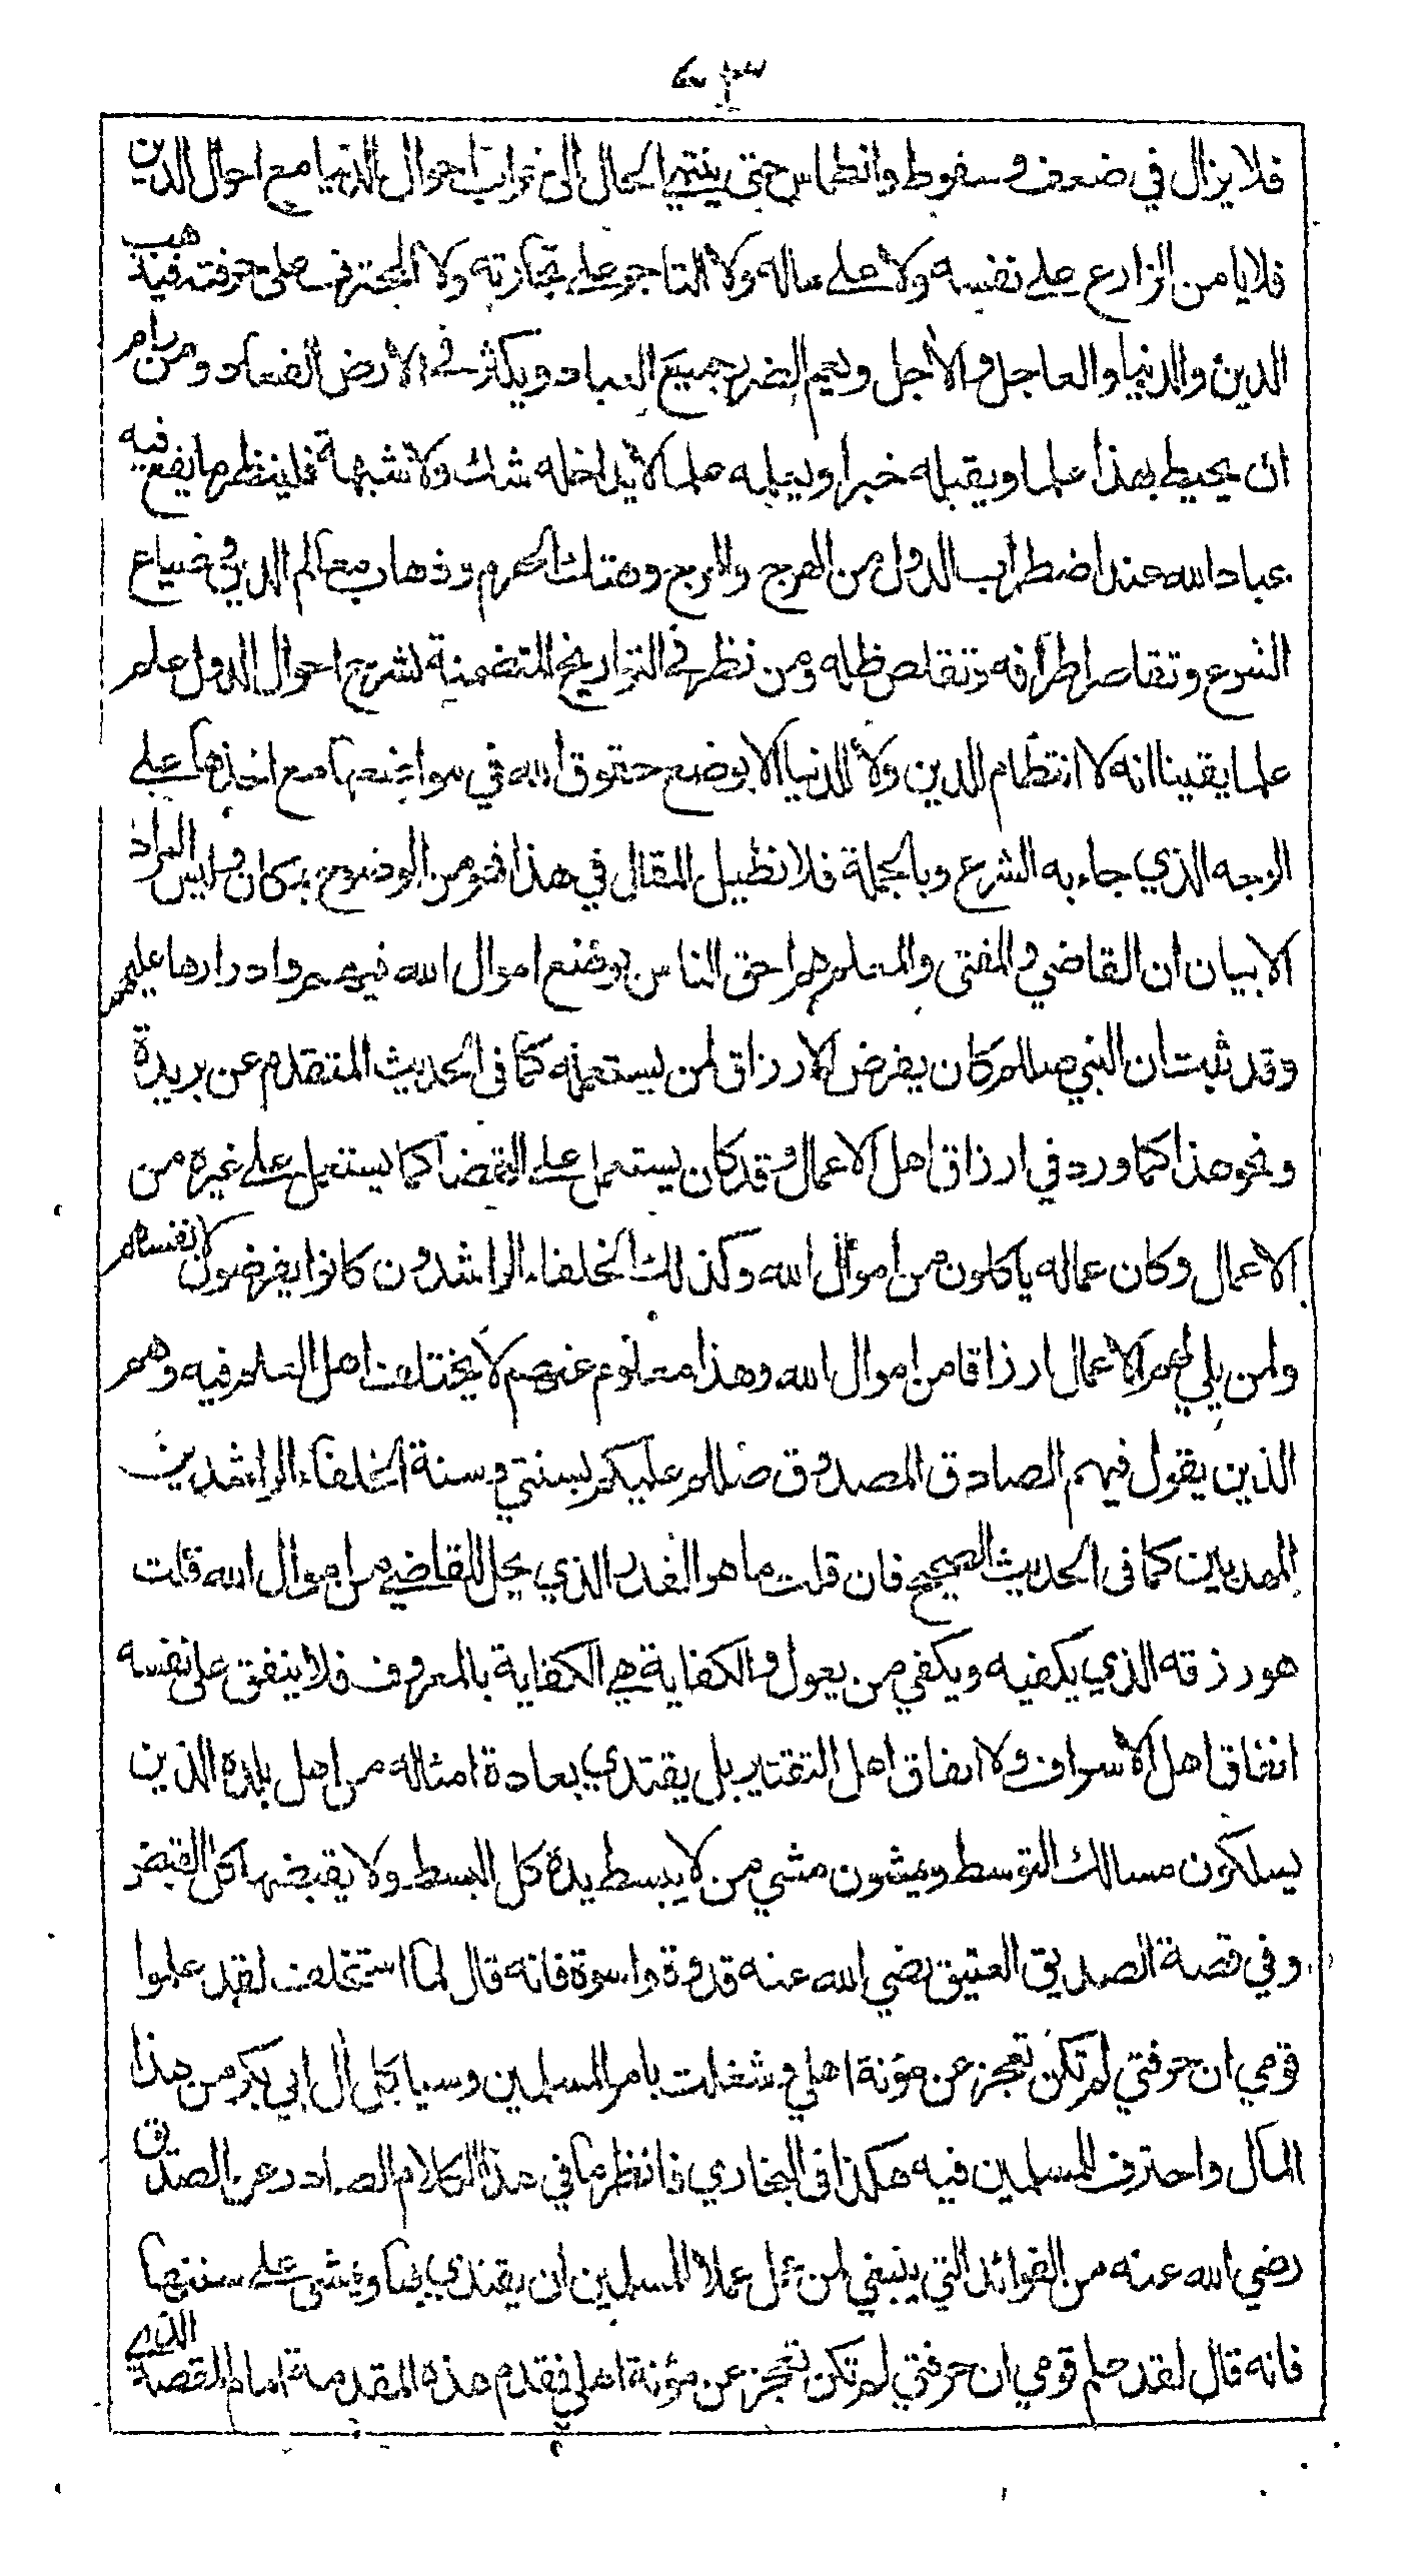 ٤٣
فلا يزال في ضعف وسقوط وانطماس حتى ينتهي الحال الى خراب احوال الدنيا مع احوال الدين
فلا يامن الزارع على نفسه ولا على ماله ولا التاجر على تجارته ولا المحترف على حرفته فيذهب
الدين والدنيا والعاجل والآجل ويعم الضرر جميع العباد ويكثر في الارض الفساد ومن رام
ان يحيط بهذا علما ويقبله خبرا ويعلمه علما لا يداخله شك ولا شبهة فلينظر ما يقع فيه
عباد الله عند اضطراب الدول من الهرج والمرج وهتك الحرم وذهاب معالم الدين وضياع
الشرع وتقاصر اطرافه وتقلص ظله ومن نظر في التواريخ المتضمنة لشرح احوال الدول علم
علما يقينا انه لا انتظام للدين ولا للدنيا الا بوضع حقوق الله في مواضعها مع اخذها على
الوجه الذي جاء به الشرع وبالجملة فلا نطيل المقال في هذا فهو من الوضوح بمكان وليس المراد
الا بيان ان القاضي والمفتي والمعلم هم احق الناس بوضع اموال الله فيهم وادرارها عليهم
وقد ثبت ان النبي صللم كان يفرض الارزاق لمن يستعمله كما فى الحديث المتقدم عن بريدة
ونحو هذا كما ورد في ارزاق اهل الاعمال وقد كان يستعمل على القضا كما يستعمل على غيره من
الاعمال وكان عماله ياكلون من اموال الله وكذلك الخلفاء الراشدون كانوا يفرضون لانفسهم
ولمن يلي لهم الاعمال ارزاقا من اموال الله وهذا معلوم عنهم لا يختلف اهل العلم فيه وهم
الذين يقول فيهم الصادق المصدوق صللم عليكم بسنتي وسنة الخلفاء الراشدين
المهديين كما فى الحديث الصحيح فان قلت ما هو القدر الذي يحل للقاضي من اموال الله قلت
هو رزقه الذي يكفيه ويكفي من يعول والكفاية هي الكفاية بالمعروف فلا ينفق على نفسه
انفاق اهل الاسراف ولا انفاق اهل التقتير بل يقتدي بعادة امثاله من اهل بلده الذين
يسلكون مسالك التوسط ويمشون مشي من لا يبسط يده كل البسط ولا يقبضها كل القبض
وفي قصة الصديق العتيق رضي الله عنه قدوة واسوة فانه قال لما استخلف لقد علموا
قومي ان حرفتي لم تكن تعجز عن مؤنة اهلي وشغلت بامر المسلمين وسياكل آل ابي بكر من هذا
المال واحترف للمسلمين فيه هكذا فى البخاري فانظر ما في هذا الكلام الصادر عن الصديق
رضي الله عنه من الفوائد التي ينبغي لمن عمل عملا للمسلمين ان يقتدي بها ويمشى على سننها
فانه قال لقد علم قومي ان حرفتي لم تكن تعجز عن مؤنة اهلي فقدم هذه المقدمة امام القصة الذي